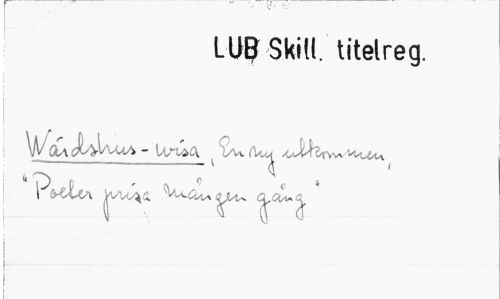 LUB Skill. titelreg.
Wärdshus-wisa, En ny utkommen,
"Poeter prisa mången gång"